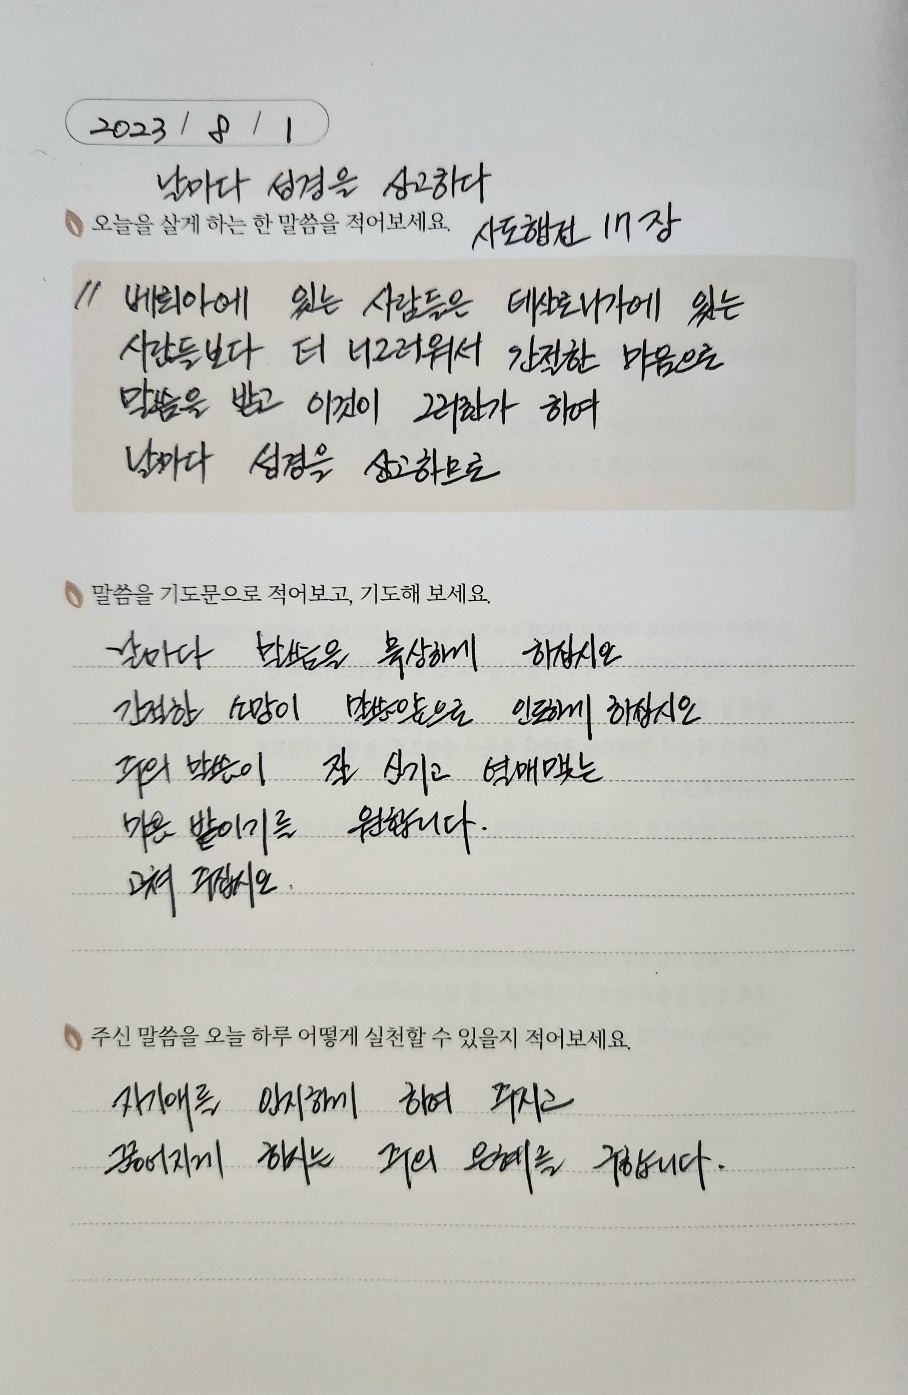 2023 / 8 / 1
날마다 성경을 상고하다
오늘을 살게 하는 한 말씀을 적어보세요. 사도행전 17장
11 베뢰아에 있는 사람들은 데살로니가에 있는
사람들보다 더 너그러워서 간절한 마음으로
말씀을 받고 이것이 그러한가 하여
날마다 성경을 상고하므로
말씀을 기도문으로 적어보고, 기도해 보세요.
날마다 말씀을 묵상하게 하십시오
간절한 소망이 말씀앞으로 인도하게 하십시오
주의 말씀이 잘 심기고 열매맺는
마음 밭이기를 원합니다.
고쳐 주십시오.
주신 말씀을 오늘 하루 어떻게 실천할 수 있을지 적어보세요.
자기애를 인지하게 하여 주시고
끊어지게 하시는 주의 은혜를 구합니다.